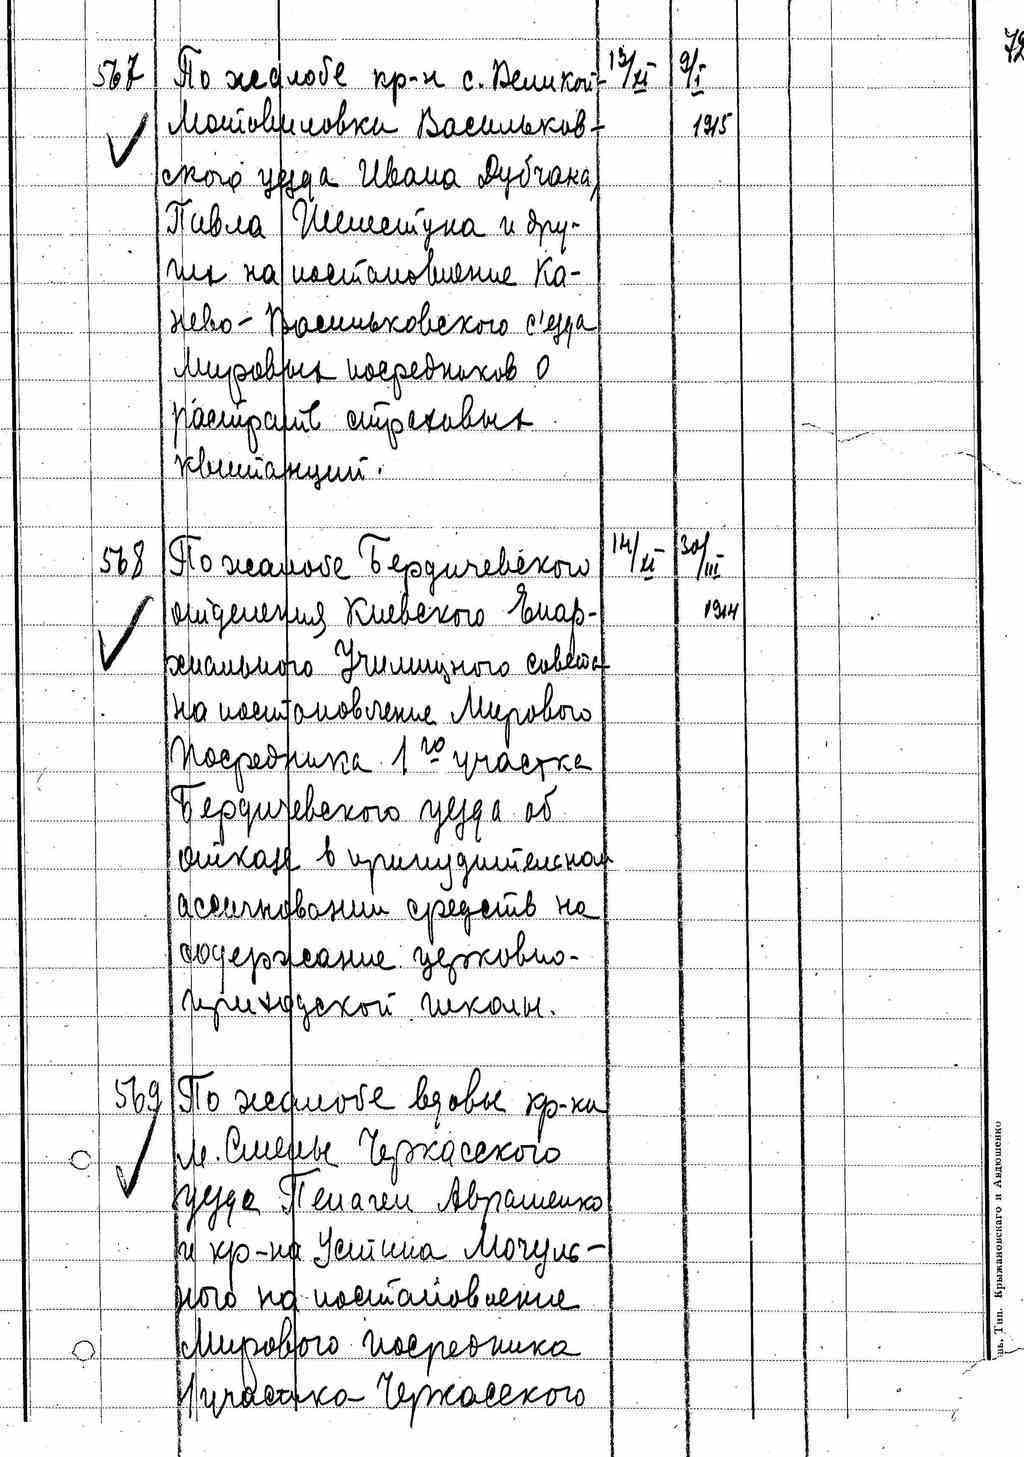 72
567 По жалобе кр-н с. Великой 13/XI 9/I
Мотовиловки Васильков- 1915
ского уезда Ивана Дубчака,
Павла Шешстука и дру-
гих на постановление Ка-
нево-Васильковского с'езда
Мировых посредников о
растрате страховых
квитанций.
568 По жалобе Бердичевского 14/XI 30/III
отделения Киевского Епар- 1914
хиального Училищного совета
на постановление Мирового
Посредника 1го участка
Бердичевского уезда об
отказе в принудительном
ассигновании средств на
содержание церковно-
приходской школы.
569 По жалобе вдовы кр-ки
м. Смелы Черкасского
уезда Пелагеи Аврашенко
и кр-на Устина Мочуль-
ного на постановление
Мирового посредника
1 участка Черкасского
Тип. Крыжановскаго и Авдюшенко